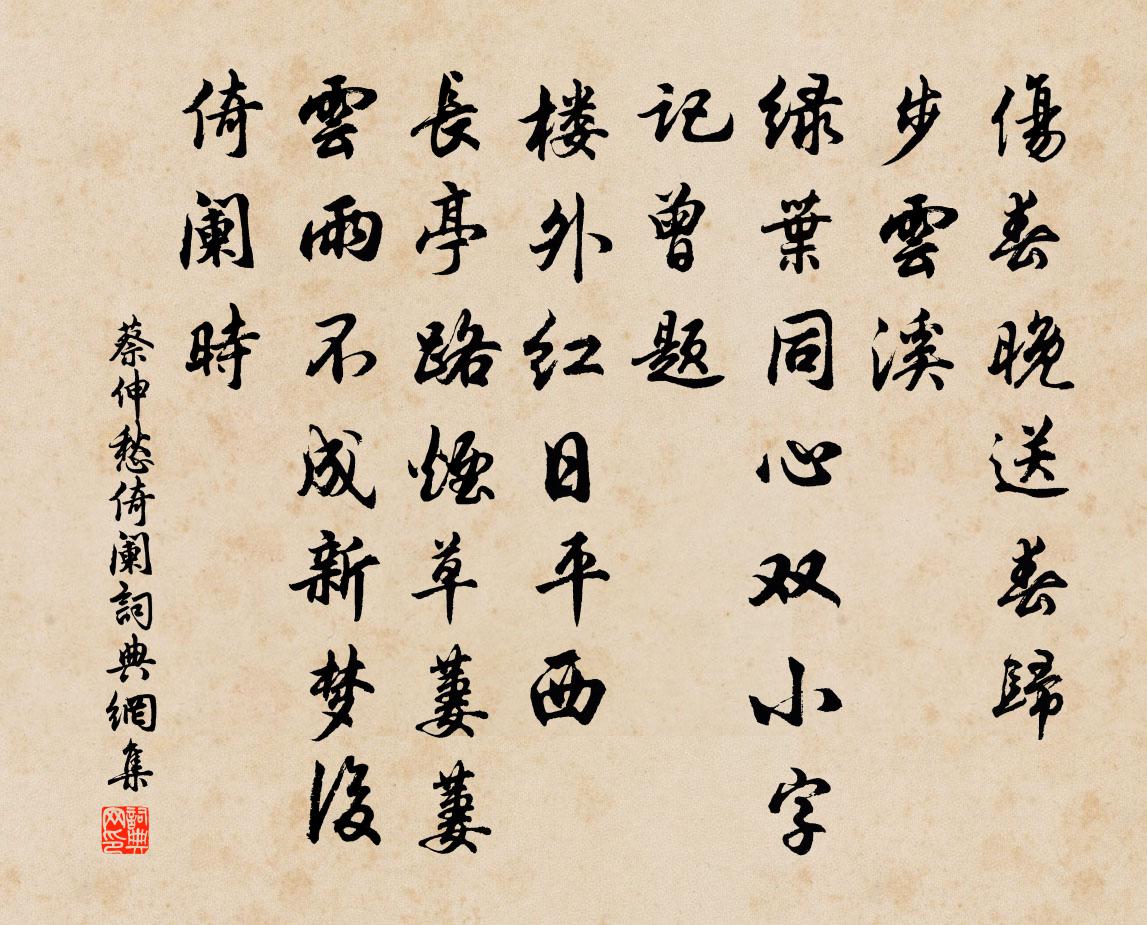 傷春晚送春歸
步雲溪
绿葉同心双小字
记曾题
楼外红日平西
長亭路煙草萋萋
雲雨不成新梦後
倚闌時
蔡伸愁倚闌詞典網集
詞典网印